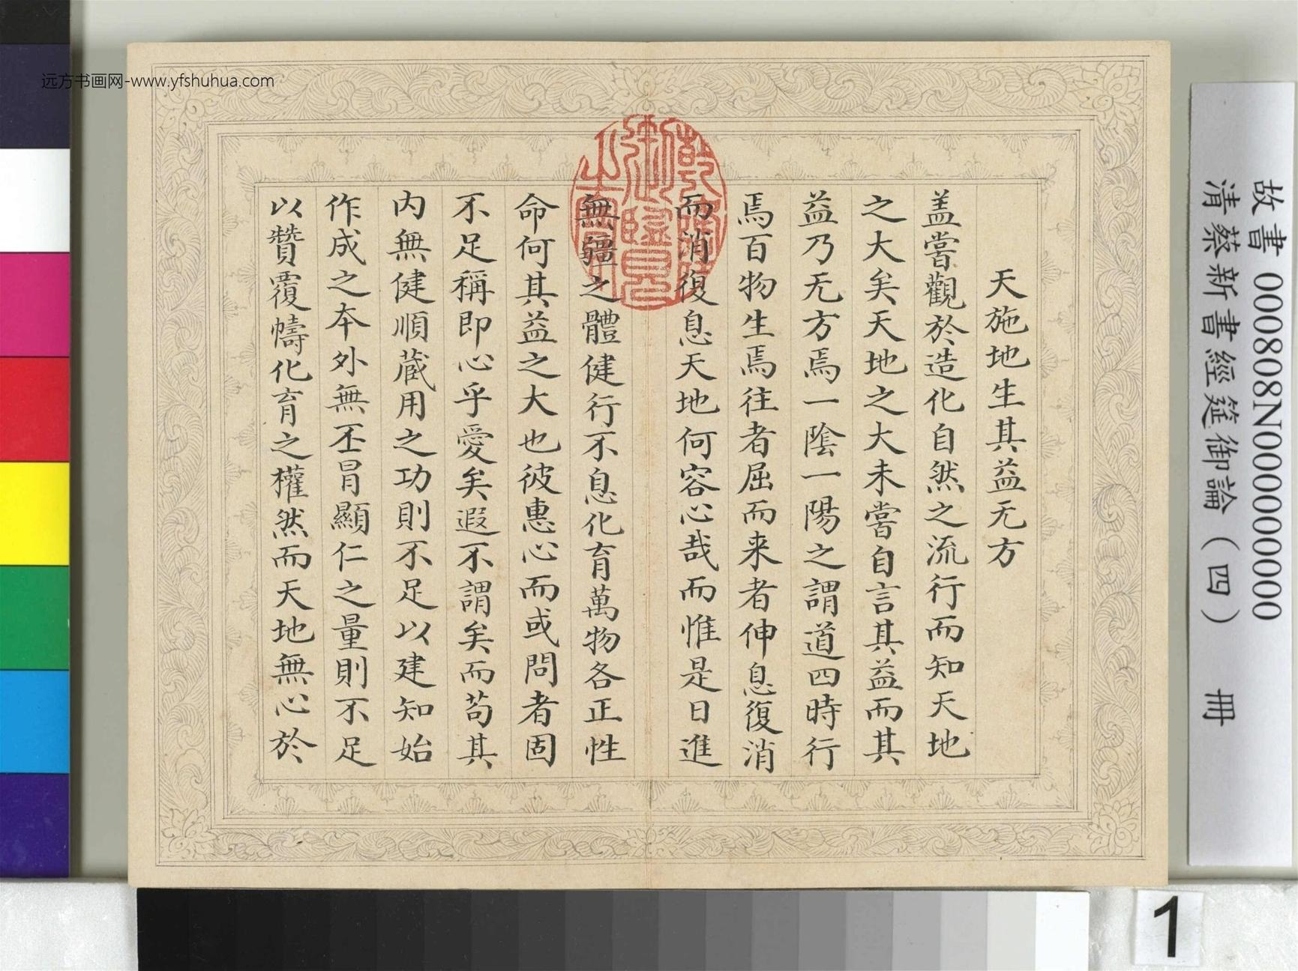 天施地生其益无方
盖嘗觀於造化自然之流行而知天地
之大矣天地之大未嘗自言其益而其
益乃无方焉一陰一陽之謂道四時行
焉百物生焉往者屈而来者伸息復消
而消復息天地何容心哉而惟是日進
無疆之體健行不息化育萬物各正性
命何其益之大也彼惠心而或問者固
不足稱即心乎愛矣遐不謂矣而苟其
内無健順蔵用之功則不足以建知始
作成之本外無丕冐顯仁之量則不足
以贊覆幬化育之權然而天地無心於
故書 000808N000000000
清蔡新書經筵御論（四） 冊
远方书画网-www.yfshuhua.com
1